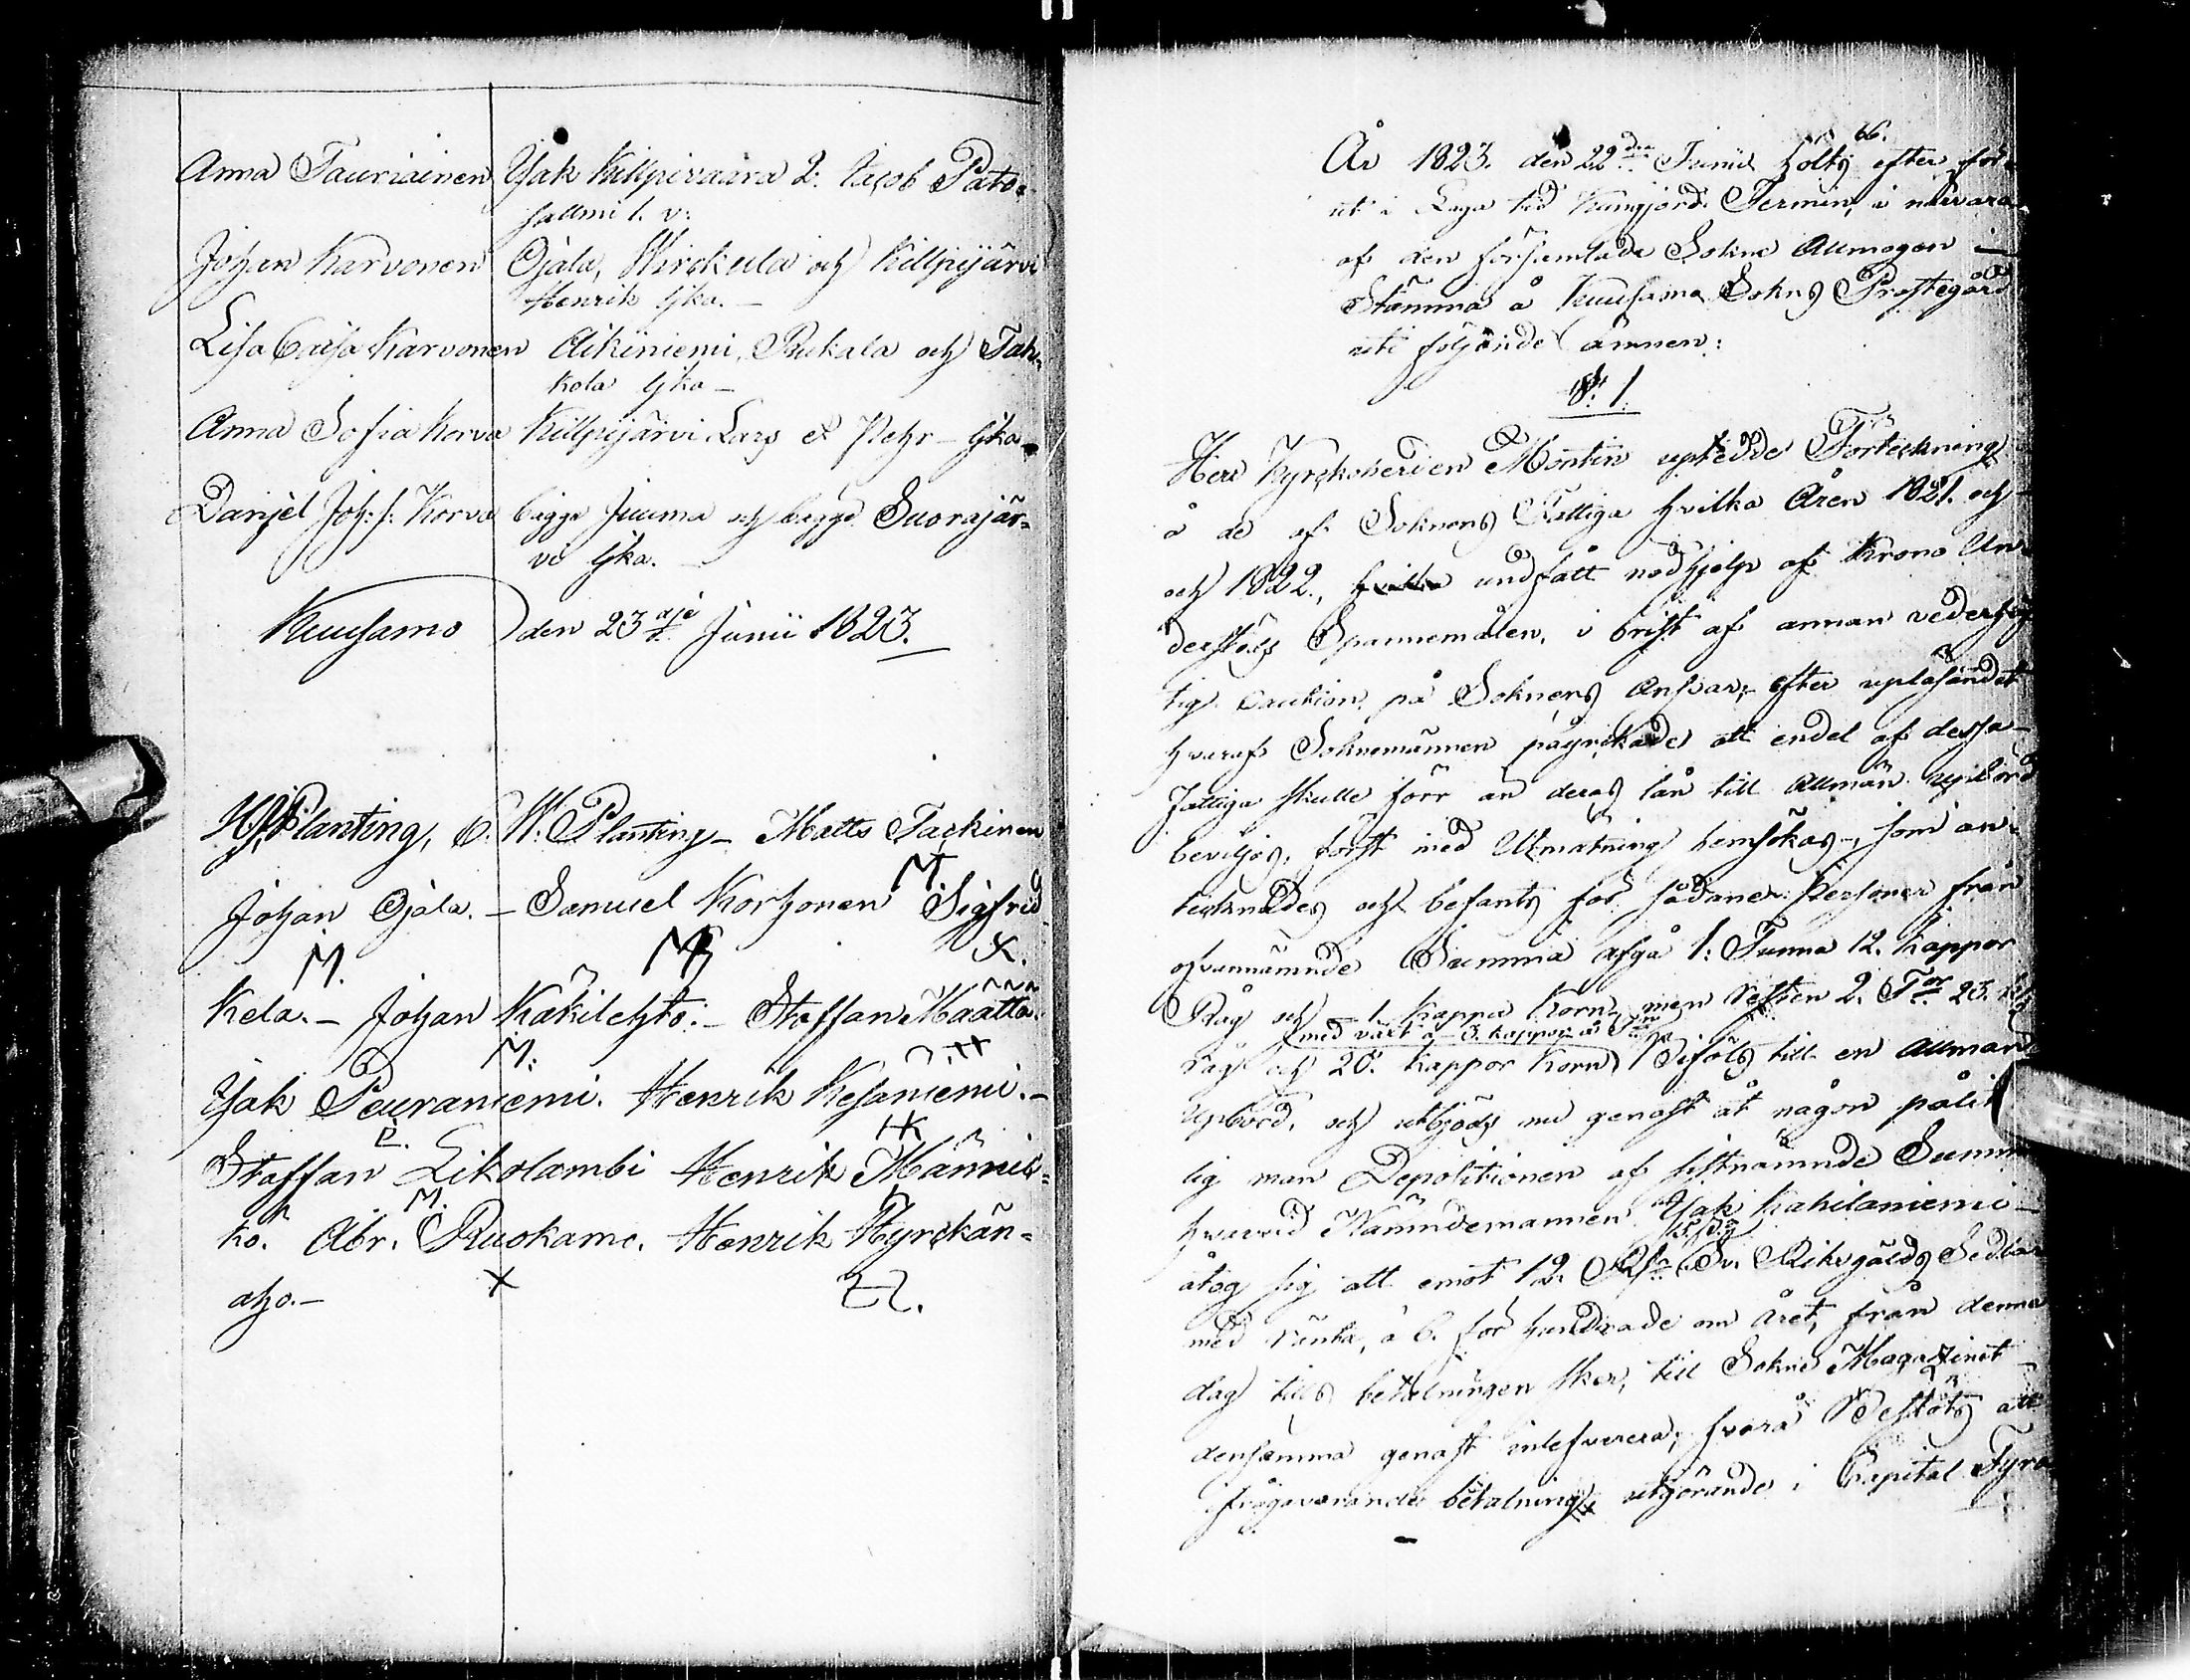 Anna Tauriainen Isak Killpivaara 2. Jacob Pato-
sallmi 1. v:
Johan Karvonen Ojala, Wirckula och Killpijärvi
Henrik lika.-
Lisa Caisa Karvonen Aikiniemi, Rukala och Tah-
kola lika-
Anna Sofia Korva Killpijärvi Lars & Pehr - lika-
Daniel Joh: s: Korva bägge Juuma och bägge Suorajär-
vi lika.
Kuusamo den 23dje Junii 1823.
Planting, C. W. Planting - Matts Tackinen
Johan Ojala. - Samuel Korhonen Sigfrid
M. M X.
Kela. - Johan Käkilehto. - Staffan Määtta.
M:
Isak Peuraniemi. Henrik Kesäniemi.-
P. HK
Staffan Likolambi Henrik Männik-
M.
kö. Abr. Ruokamo. Henrik Hyrckän-
aho.- X
66.
År 1823. den 22dra Junii holts efter för-
ut i Laga tid kungjord Termin, i närvara
af den församlade Sokne Allmogen -
Stämma å Kuusamo Sokns Prästegård
uti följande ämnen:
§. 1.
Herr Kyrckoherden Montin uptedde Förteckning
å de af Soknens Fattiga hvilka Åren 1821. och
och 1822., undfått nödhjelp af Krono Un-
derstöds Spannemålen, i brist af annan vederhäf-
tig Caution på Soknens Ansvar; efter upläsandet
hvaraf Soknemännen påyrckade att endel af dessa
fattiga skulle förr än deras lån till Allmän upbörd
beviljas, först med Utmätning hemsökas -, som an-
tecknades och befants för sådane Personer från
ofvannämnde Summa afgå 1: Tunna 12. kappor
Råg och 1 kappa Korn, men Resten 2. Tr 23. k
med växt à 3. kappor à Tun
råg och 20. kappor Korn, till en Allmän
Upbörd, och utbjöds nu genast åt någon pålit
lig man Depositionen af sistnämnde Summ
hvarvid Nämndemannen Isak Kahilaniemi -
åtog sig att emot 12. Rd Sv. Riksgälds Sedlar
med ränta, à 6. för hundrade om året, från denna
dag tills betalningen sker, till Sokne Magazinet
densamma genast inleverera; hvarå Beslöts att
ifrågavarande betalning, utgörande i Capital Fyra